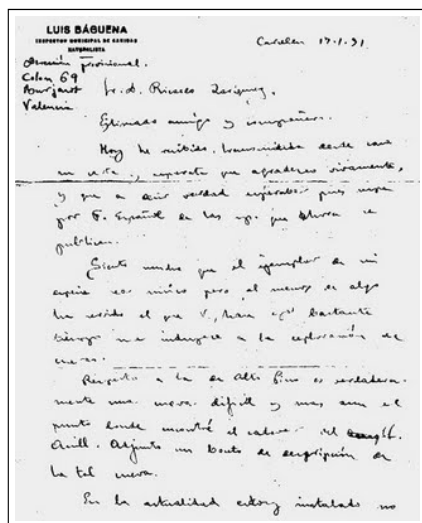 LUIS BÁGUENA
INSPECTOR MUNICIPAL DE SANIDAD
NATURALISTA
Dirección provisional.
Colon 69
Burjasot
Valencia
Sr. D. Ricardo Zariquiey,
Estimado amigo y compañero:
Hoy he recibido, transmitida desde casa
que agradezco vivamente,
y que a decir verdad esperaba pues supe
por F. Español de las sp. que ahora se
publican.
Siento mucho que el ejemplar de mi
sea único pero al menos en algo
ha servido el que V., hace ya bastante
tiempo me indujese a la exploración de
cuevas.
Respecto a la de Alto Pino es verdadera-
mente una cueva difícil y mas aun el
punto donde encontré el cadaver del
Anill. Adjunto un boceto de descripción de
la tal cueva.
En la actualidad estoy instalado no